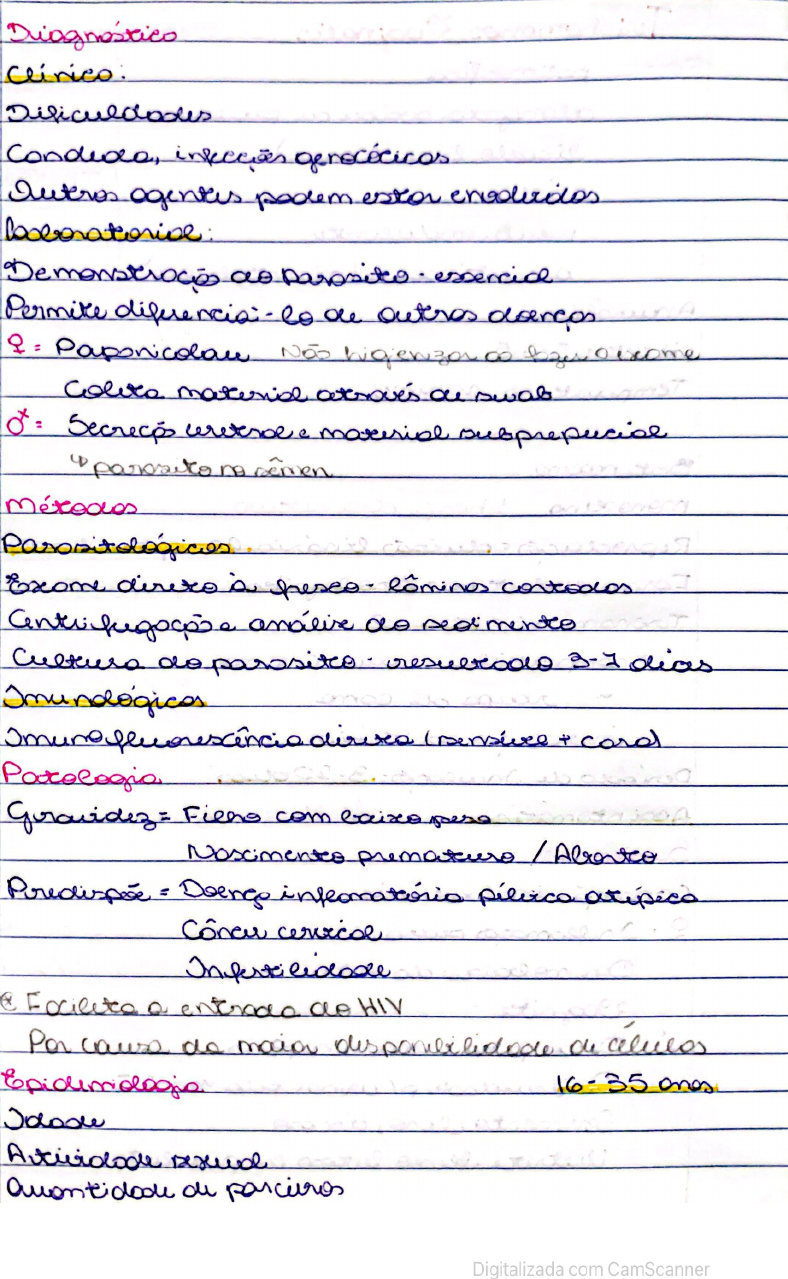 Diagnóstico
Clínico:
Dificuldades
Candida, infecções gonocócicas
Outros agentes podem estar envolvidos
Laboratorial:
Demonstração do parasito - essencial
Permite diferenciá-lo de outras doenças
♀ = Papanicolau Não higienizar ao fazer o exame
Coleta material através de swab
♂ = Secreção uretral e material subprepucial
↳ parasito no sêmen
Métodos
Parasitológicos.
Exame direto à fresco - lâminas coradas
Centrifugação e análise do sedimento
Cultura do parasito - resultado 3-7 dias
Imunológicos
Imunofluorescência direta (sensível + cara)
Patologia
Gravidez = Filho com baixo peso
Nascimento prematuro / Aborto
Predispõe = Doença inflamatória pélvica atípica
Câncer cervical
Infertilidade
* Facilita a entrada do HIV
Por causa da maior disponibilidade de células
Epidemiologia 16-35 anos
Idade
Atividade sexual
Quantidade de parceiros
Digitalizada com CamScanner